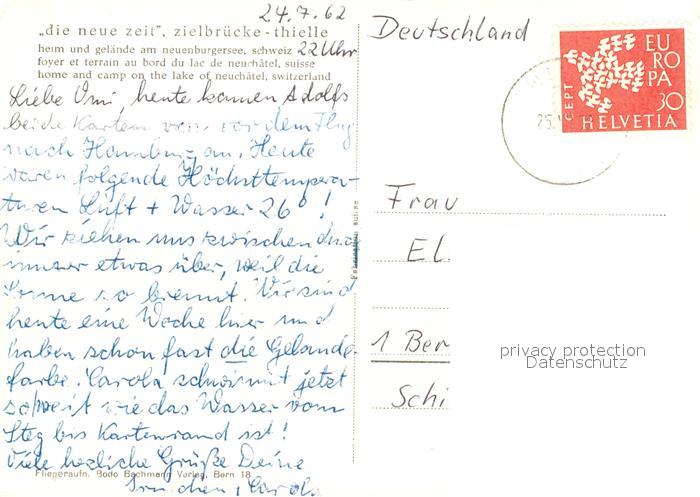 24.7.62
„die neue zeit", zielbrücke-thielle
heim und gelände am neuenburgersee, schweiz 22 Uhr
foyer et terrain au bord du lac de neuchâtel, suisse
home and camp on the lake of neuchâtel, switzerland
Liebe Omi, heute kamen Adolfs
beide Karten von, vor dem Flug
nach Hamburg an. Heute
waren folgende Höchsttempera-
turen Luft + Wasser 26° !
Wir ziehen uns zwischendurch
immer etwas über, weil die
Sonne so brennt. Wir sind
heute eine Woche hier und
haben schon fast die Gelände-
farbe. Carola schwimmt jetzt
soweit wie das Wasser vom
Steg bis Kartenrand ist!
Viele herzliche Grüße Deine
Fliegeraufn. Bodo Bachmann Verlag, Bern 18
Carola
Deutschland
EUROPA
CEPT
30
HELVETIA
25.
Frau
El.
1 Ber
Schi
privacy protection
Datenschutz